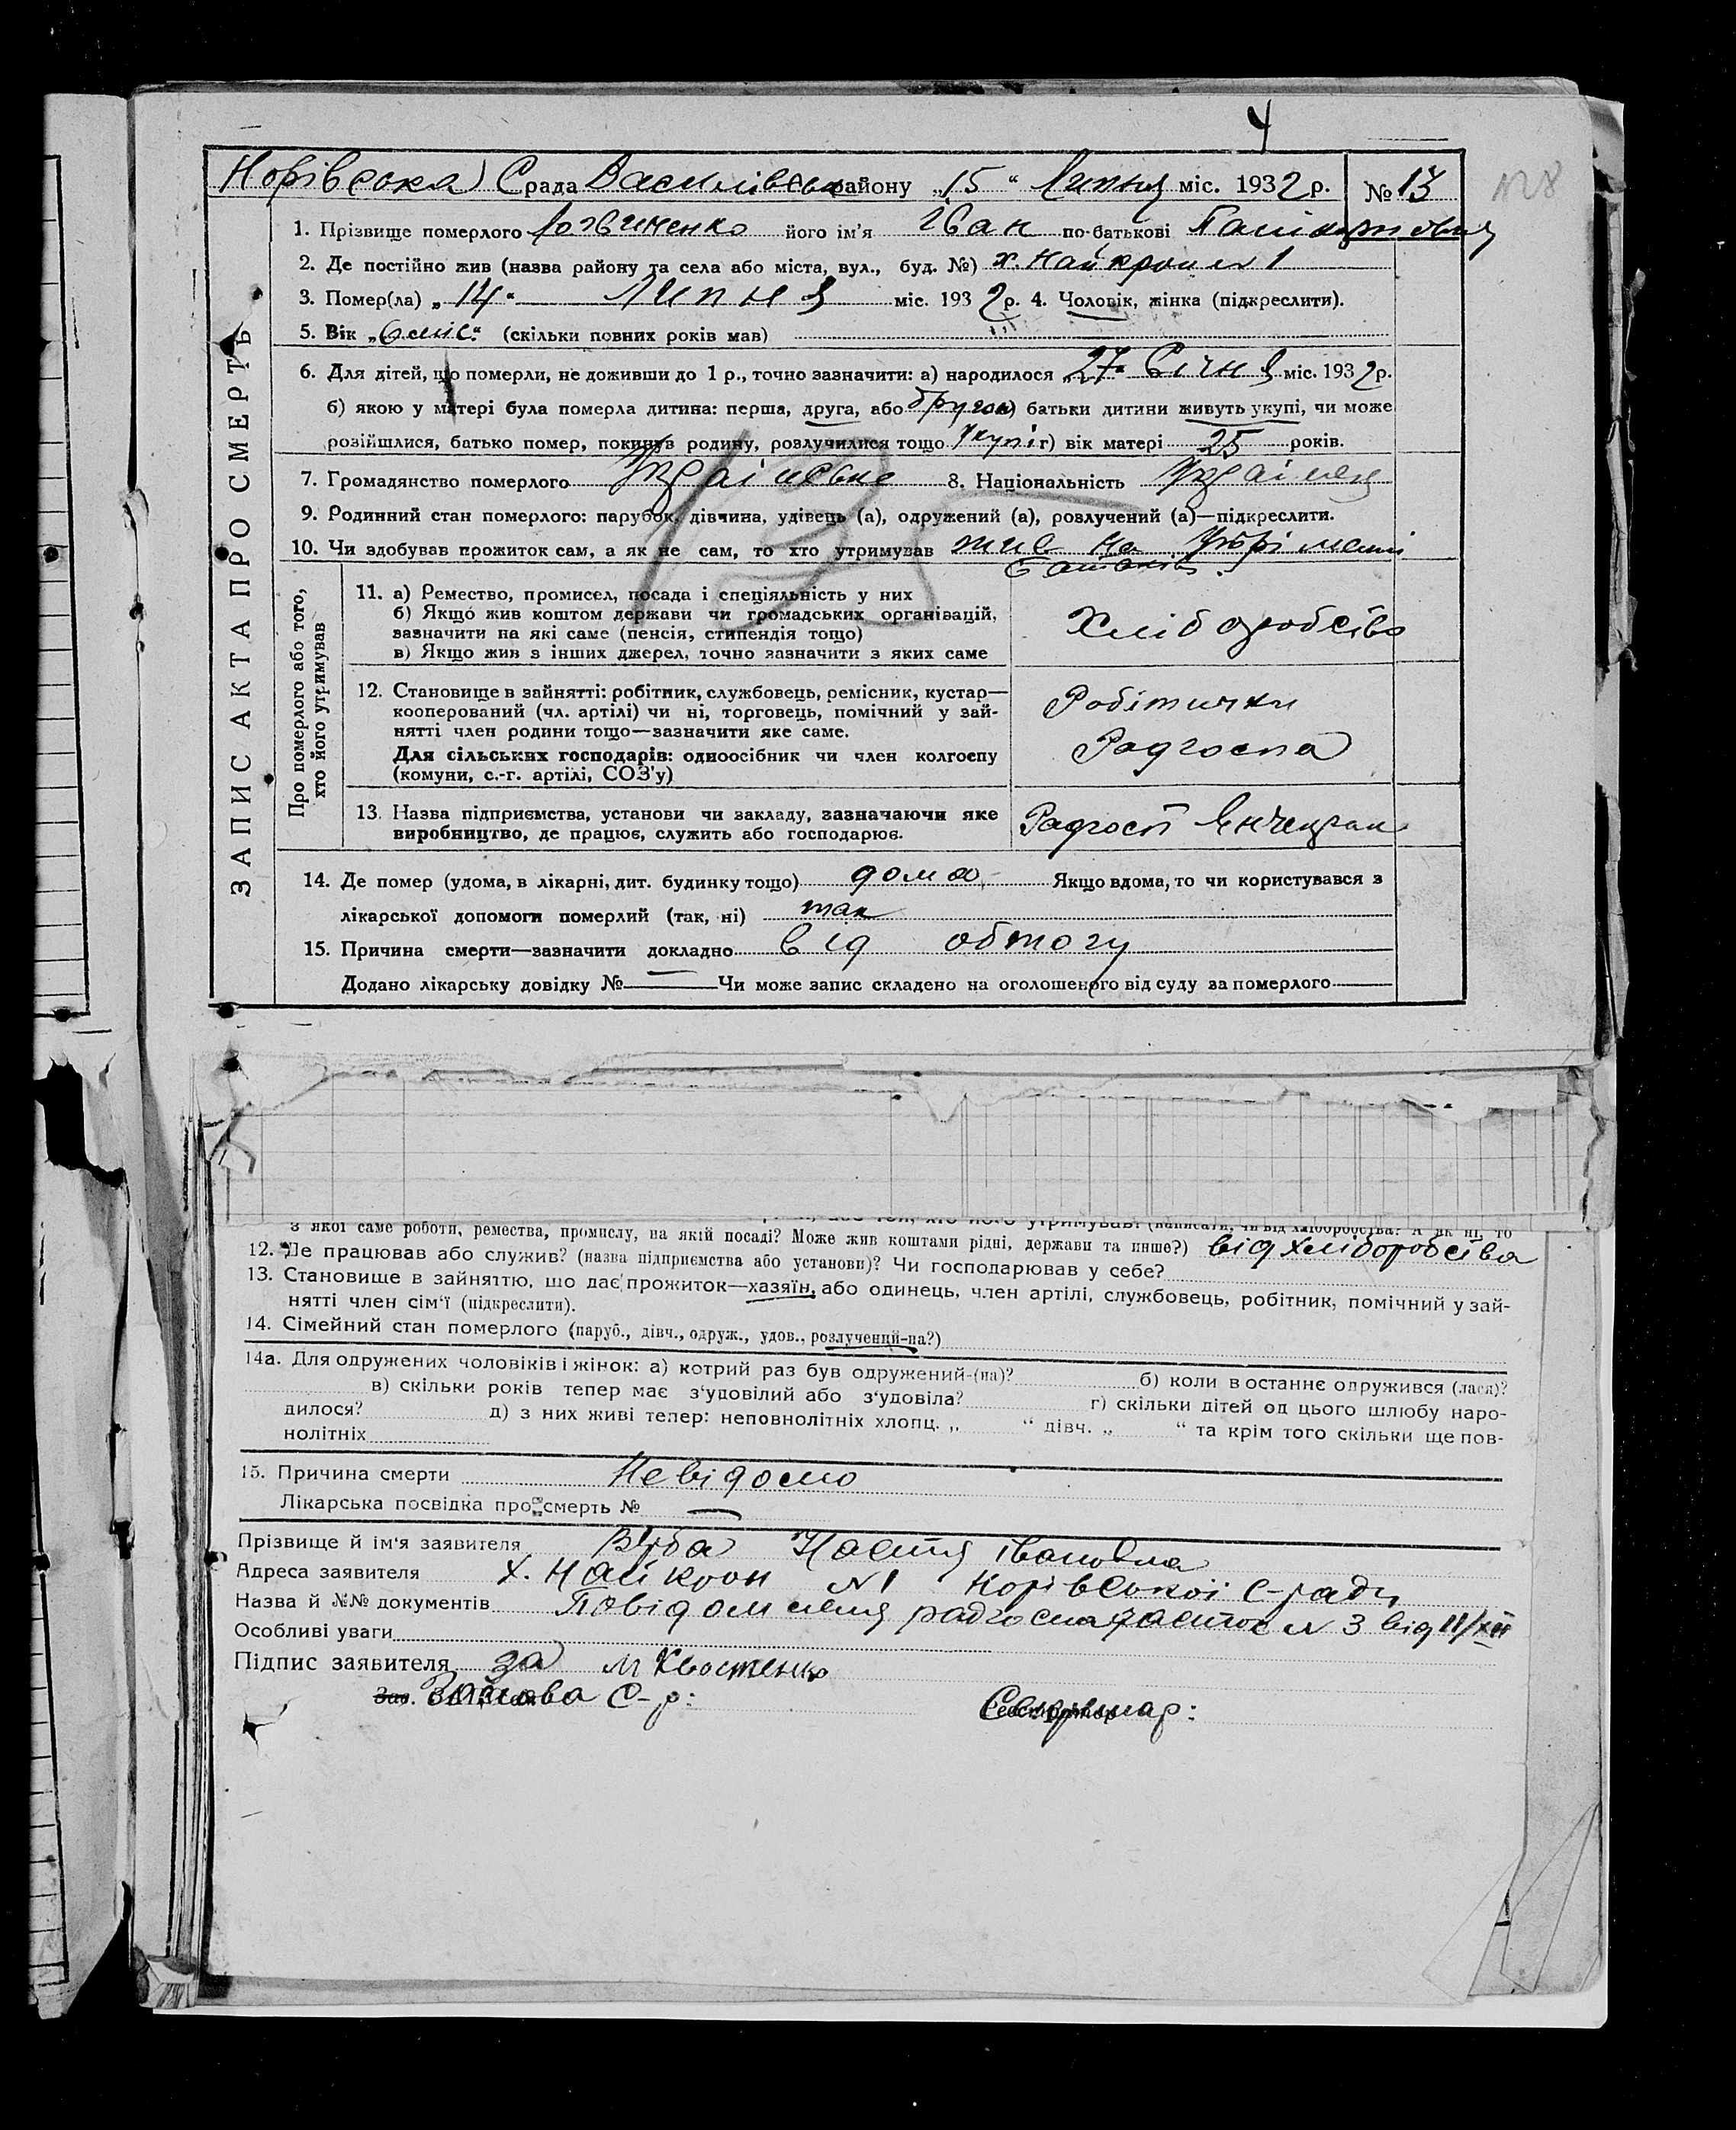 4
Норівська Срада Василівськ району „15“ Липня міс. 1932 р. № 13
128
ЗАПИС АКТА ПРО СМЕРТЬ
1. Прізвище померлого Логвиненко його ім'я Іван по-батькові
2. Де постійно жив (назва району та села або міста, вул., буд. №) х. Найкрон № 1
3. Помер(ла) „14“ Липня міс. 1932 р. 4. Чоловік, жінка (підкреслити).
5. Вік „6 міс.“ (скільки повних років мав)
6. Для дітей, що померли, не доживши до 1 р., точно зазначити: а) народилося „27“ Січня міс. 1932 р.
б) якою у матері була померла дитина: перша, друга, або другою в) батьки дитини живуть укупі, чи може
розійшлися, батько помер, покинув родину, розлучилися тощо Укупі г) вік матері 25 років.
7. Громадянство померлого Українське 8. Національність Українец
9. Родинний стан померлого: парубок, дівчина, удівець (а), одружений (а), розлучений (а)—підкреслити.
10. Чи здобував прожиток сам, а як не сам, то хто утримував жив на утриманні
батьків.
13
Про померлого або того, хто його утримував
11. а) Ремество, промисел, посада і спеціяльність у них
б) Якщо жив коштом держави чи громадських організацій,
зазначити на які саме (пенсія, стипендія тощо)
в) Якщо жив з інших джерел, точно зазначити з яких саме
Хліборобство
12. Становище в зайнятті: робітник, службовець, ремісник, кустар—
кооперований (чл. артілі) чи ні, торговець, помічний у зай-
нятті член родини тощо—зазначити яке саме.
Для сільських господарів: одноосібник чи член колгоспу
(комуни, с.-г. артілі, СОЗ'у)
Робітники
Радгоспа
13. Назва підприємства, установи чи закладу, зазначаючи яке
виробництво, де працює, служить або господарює.
Радгосп
14. Де помер (удома, в лікарні, дит. будинку тощо) дома Якщо вдома, то чи користувався з
лікарської допомоги померлий (так, ні) так
15. Причина смерти—зазначити докладно від обтогу
Додано лікарську довідку № — Чи може запис складено на оголошеного від суду за померлого
з якої саме роботи, ремества, промислу, на якій посаді? Може жив коштами рідні, держави та инше?) від хліборобства
12. Де працював або служив? (назва підприємства або установи)? Чи господарював у себе?
13. Становище в зайняттю, що дає прожиток—хазяїн, або одинець, член артілі, службовець, робітник, помічний у зай-
нятті член сім'ї (підкреслити).
14. Сімейний стан померлого (паруб., дівч., одруж., удов., розлучений-на?)
14а. Для одружених чоловіків і жінок: а) котрий раз був одружений-(на)? б) коли востаннє одружився (лася)?
в) скільки років тепер має з'удовілий або з'удовіла? г) скільки дітей од цього шлюбу наро-
дилося? д) з них живі тепер: неповнолітніх хлопц. „ “ дівч. „ “ та крім того скільки ще пов-
нолітніх
15. Причина смерти Невідомо
Лікарська посвідка про смерть № —
Прізвище й ім'я заявителя Верба Настя Івановна
Адреса заявителя х. Найкрон № 1 Норівської С-ради
Назва й №№ документів Повідомленя радгоспа № 3 від 11/XII
Особливі уваги
Підпис заявителя за М Хвостенко
Голова С-р: Секритар: